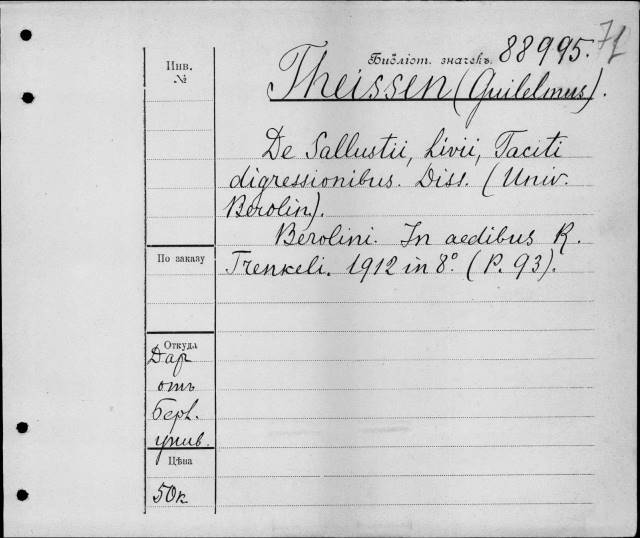 Библіот. значекъ. 88995.
Инв.
№
Theissen (Guilelmus).
De Sallustii, Livii, Taciti
digressionibus. Diss. (Univ.
Berolin).
Berolini. In aedibus R.
Trenkeli. 1912 in 8° (P. 93).
По заказу
Откуда
Дар
отъ
Берл.
унив.
Цѣна
50к